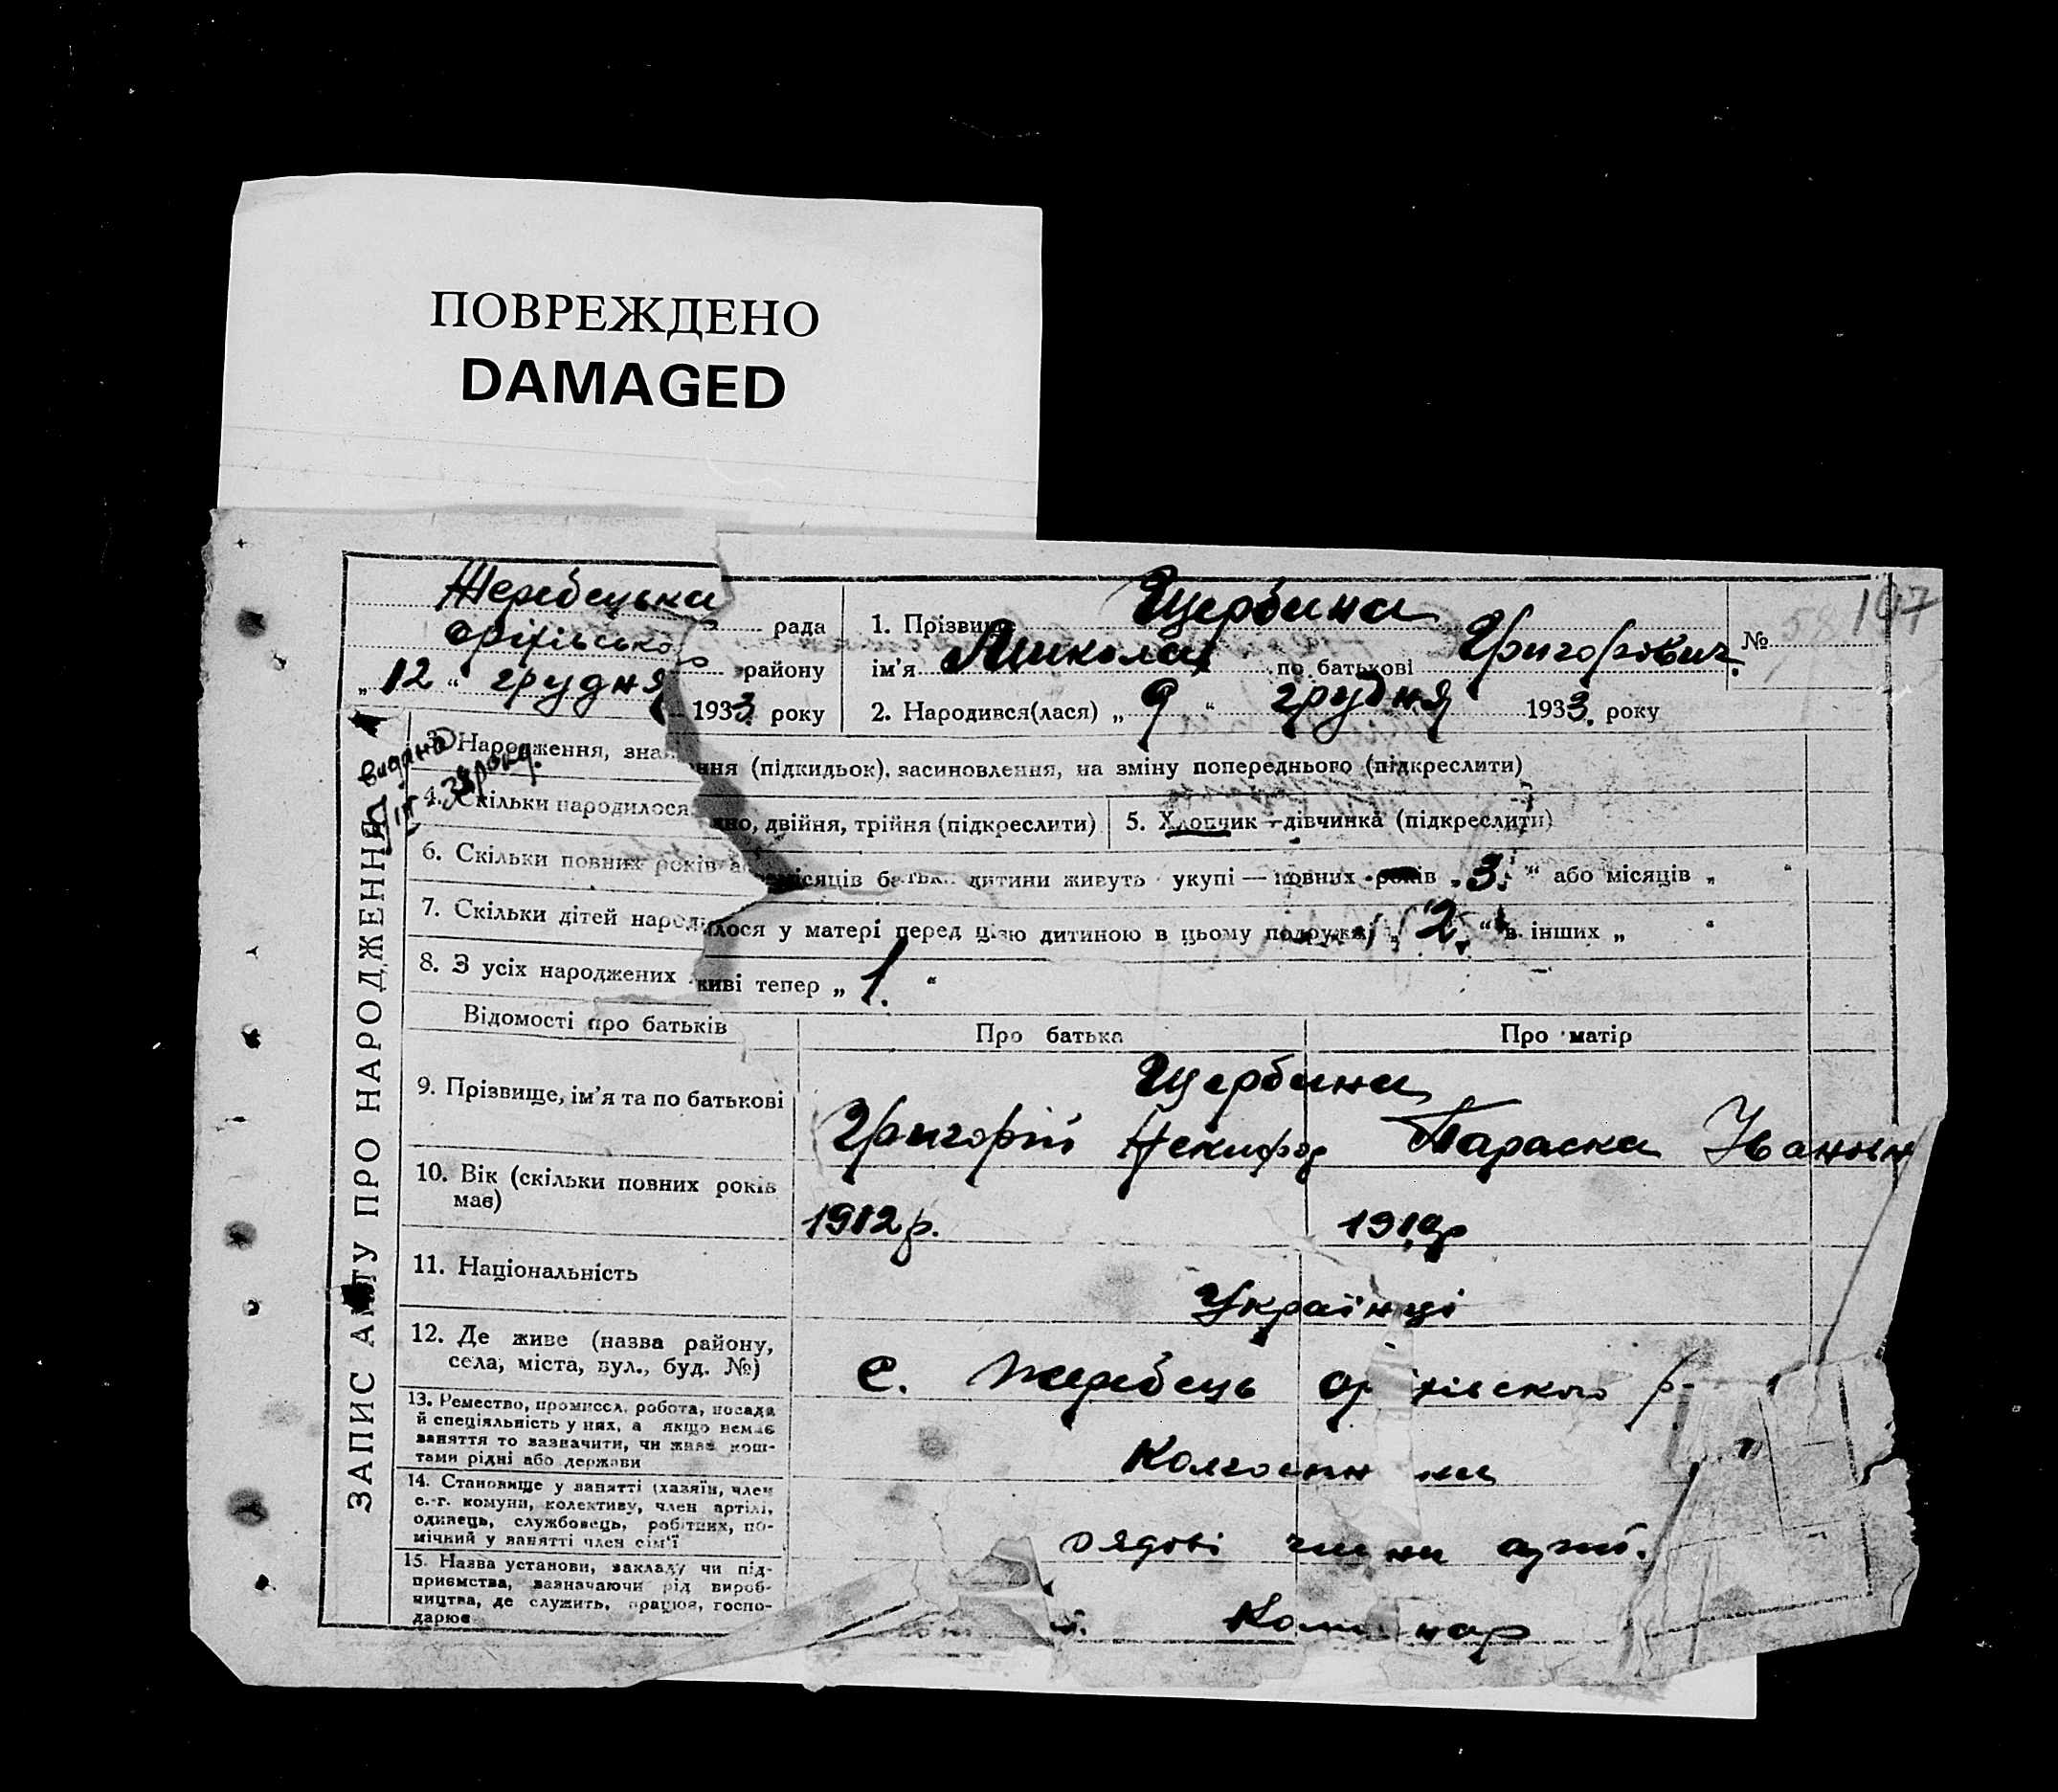 ПОВРЕЖДЕНО
DAMAGED
Жеребецька рада
Оріхівсько району
„12“ грудня 1933. року
1. Прізвище Щербина
ім’я Микола по батькові Григорович.
№ 58 147
2. Народився(лася) „ 9 “ грудня 1933. року
видано
ЗАПИС АКТУ ПРО НАРОДЖЕННЯ
3. Народження, зна ння (підкидьок), засиновлення, на зміну попереднього (підкреслити)
4. Скільки народилося дно, двійня, трійня (підкреслити)
5. Хлопчик—дівчинка (підкреслити)
6. Скільки повних років а місяців батьки дитини живуть укупі — повних років „3.“ або місяців „ “
7. Скільки дітей народилося у матері перед цією дитиною в цьому подружжі „2.“ в інших „ “
8. З усіх народжених живі тепер „1.“
Відомості про батьків
Про батька
Про матір
9. Прізвище, ім’я та по батькові
Щербини
Григорій Некифор
Параска Івановн
10. Вік (скільки повних років має)
1912р.
191 р
11. Національність
Українці
12. Де живе (назва району, села, міста, вул., буд. №)
с. Жеребець Ор хівского р-
13. Ремество, промисел, робота, посада
й спеціяльність у них, а якщо немає
заняття то зазначити, чи живе кош-
тами рідні або держави
Колгоспн ки
14. Становище у занятті (хазяїн, член
с.-г. комуни, колективу, член артілі,
одинець, службовець, робітник, по-
мічний у занятті член сім’ї
рядові чл ни
15. Назва установи, закладу чи під-
приємства, зазначаючи рід вироб-
ництва, де служить, працює, госпо-
дарює
Ком нар